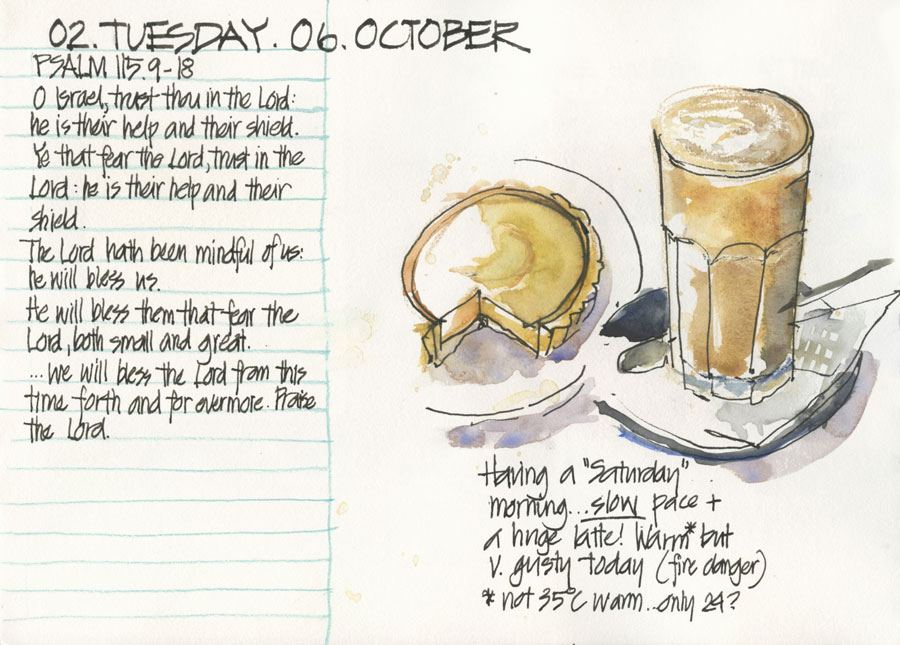 02. TUESDAY. 06. OCTOBER
PSALM 115.9-18
O Israel, trust thou in the Lord:
he is their help and their shield.
Ye that fear the Lord, trust in the
Lord: he is their help and their
shield.
The Lord hath been mindful of us:
he will bless us.
He will bless them that fear the
Lord, both small and great.
...We will bless the Lord from this
time forth and for evermore. Praise
the Lord.
Having a "Saturday"
morning...slow pace +
a huge latte! Warm* but
v. gusty today (fire danger)
* not 35°C warm...only 24?